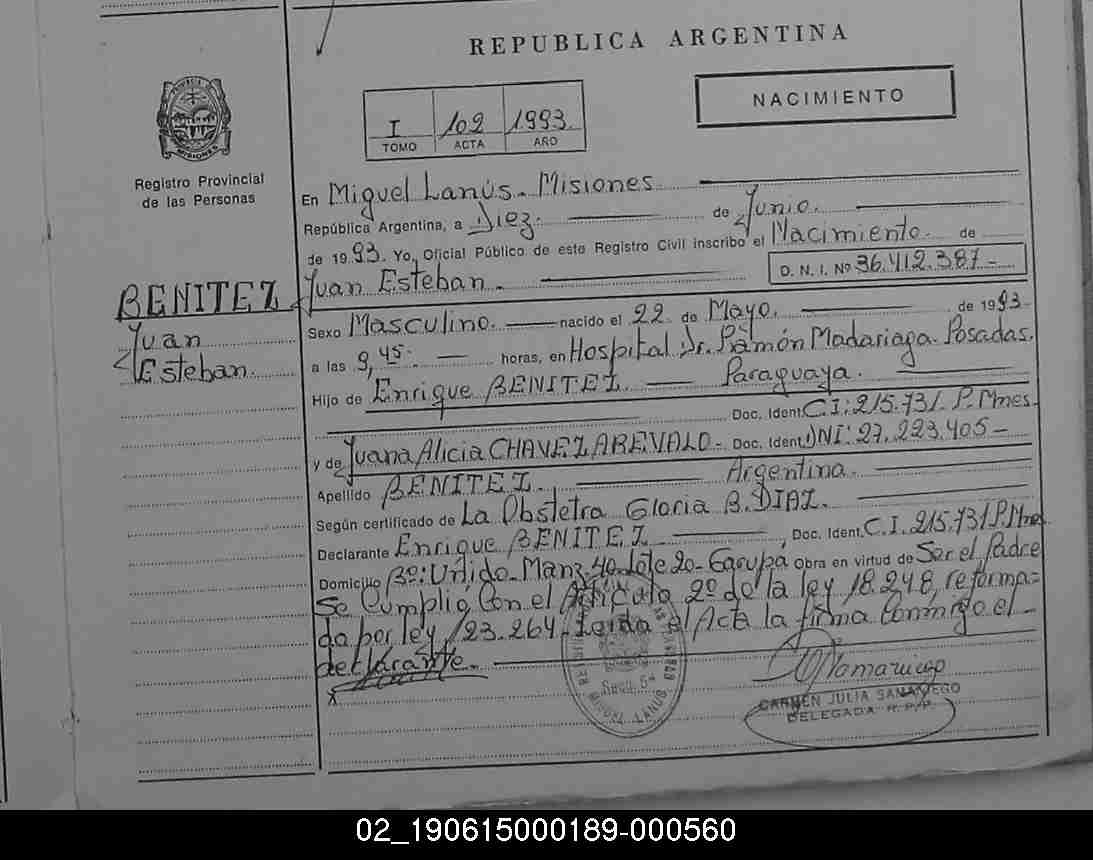 REPUBLICA ARGENTINA
NACIMIENTO
I 102 1993
TOMO ACTA AÑO
Registro Provincial
de las Personas
BENITEZ
Juan
Esteban.
En Miguel Lanús - Misiones
República Argentina, a Diez. de Junio.
de 1993. Yo, Oficial Público de este Registro Civil inscribo el Nacimiento. de
Juan Esteban. D. N. I. Nº 36.412.387-
Sexo Masculino. nacido el 22 de Mayo. de 1993-
a las 9,45- horas, en Hospital Dr. Ramón Madariaga - Posadas.
Hijo de Enrique BENITEZ Paraguaya.
Doc. Ident. C.I: 215.731. P. Mnes.
y de Juana Alicia CHAVEZ AREVALO - Doc. Ident. DNI: 27.223.405-
Argentina.
Apellido BENITEZ.
Según certificado de La Obstetra Gloria B. DIAZ.
Declarante Enrique BENITEZ Doc. Ident. C.I. 215.731 P. Mnes
Domicilio Bº: Unido - Manz. 40 - lote 20 - Garupá Obra en virtud de Ser el Padre
Se Cumplió Con el Artículo 2º de la ley 18.248, reforma=
do por ley 23.264 - Leída el Acta la firma Conmigo el
declarante.
LANUS
CARMEN JULIA SANAMIEGO
DELEGADA R.P.P.
02_190615000189-000560